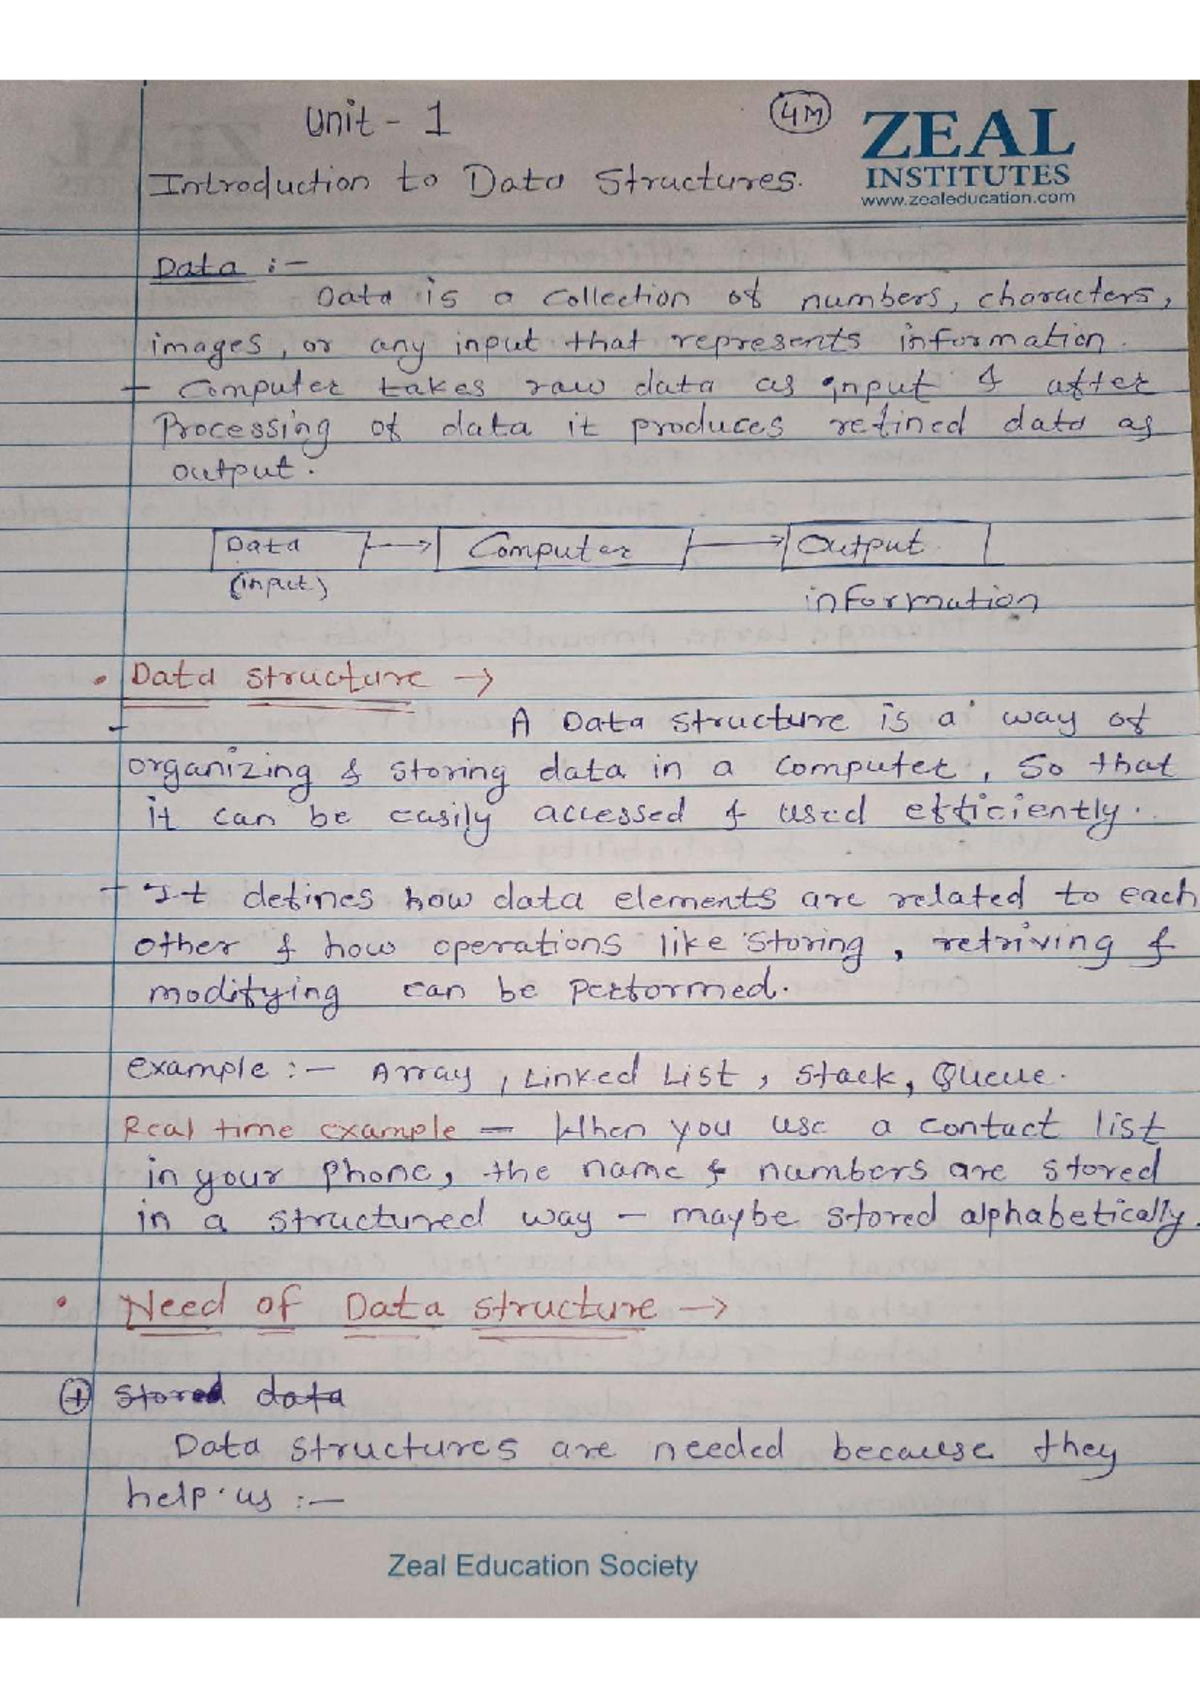 Unit - 1
4M
ZEAL
INSTITUTES
www.zealeducation.com
Introduction to Data Structures.
Data :-
Data is a collection of numbers, characters,
images, or any input that represents information.
- Computer takes raw data as input & after
Processing of data it produces refined data as
output.
Data → Computer → Output
(input)
information
• Data structure →
- A Data structure is a way of
organizing & storing data in a computer, So that
it can be easily accessed & used efficiently.
- It defines how data elements are related to each
other & how operations like storing, retriving &
modifying can be performed.
example :- Array, Linked List, Stack, Queue.
Real time example - When you use a contact list
in your phone, the name & numbers are stored
in a structured way - maybe stored alphabetically.
• Need of Data structure →
+ Stored data
Data structures are needed because they
help us :-
Zeal Education Society